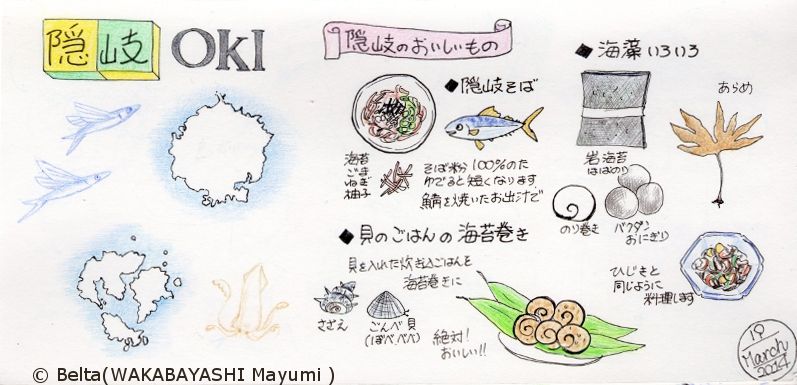 隠岐 OKI
隠岐のおいしいもの
◆隠岐そば
海苔
ごま
ねぎ
柚子
そば粉100%のため
ゆでると短くなります
鯖を焼いたお出汁で
◆貝のごはんの海苔巻き
貝を入れた炊き込ごはんを
海苔巻きに
さざえ
ごんべ貝
(ぼべ、べべ)
絶対!
おいしい!!
◆海藻いろいろ
岩海苔
はばのり
あらめ
のり巻き
バクダン
おにぎり
ひじきと
同じように
料理します
19
March
2014
© Belta(WAKABAYASHI Mayumi )